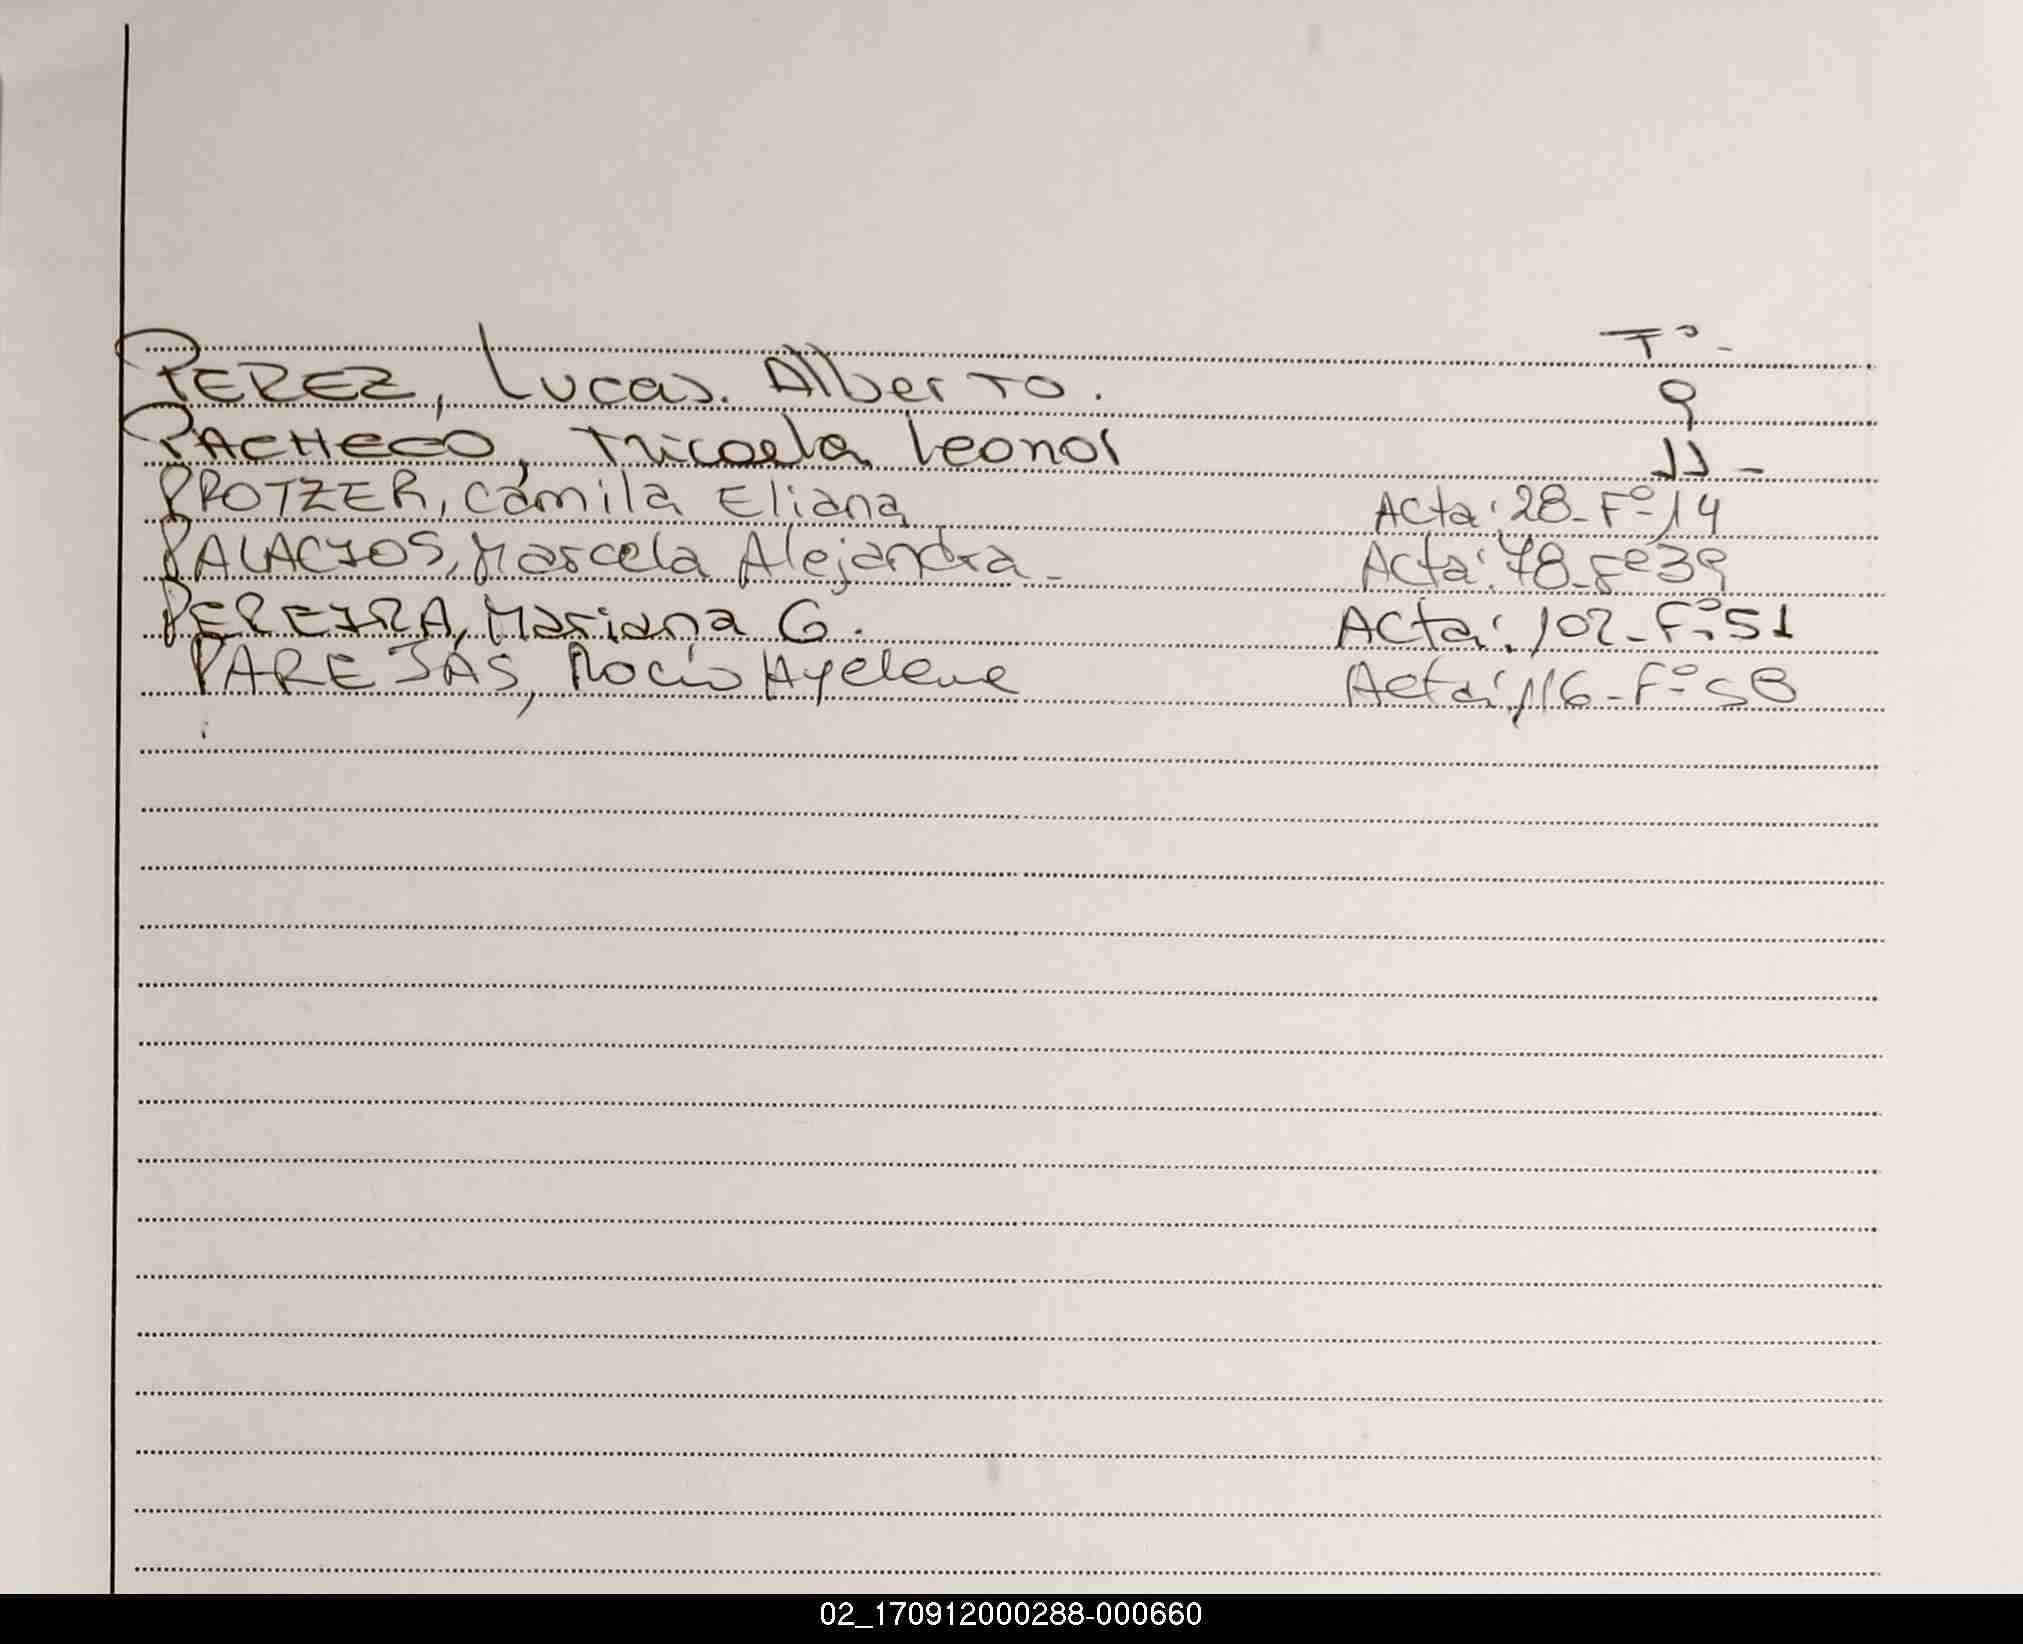 Tº-
PEREZ, Lucas. Alberto. 9
PACHECO, Micaela Leonor 11-
PROTZER, Camila Eliana Acta: 28-Fº14
PALACIOS, Marcela Alejandra- Acta: 78-Fº39
PEREIRA, Mariana G. Acta: 102-Fº51
PAREJAS, Rocío Ayelene Acta: 116-Fº58
02_170912000288-000660